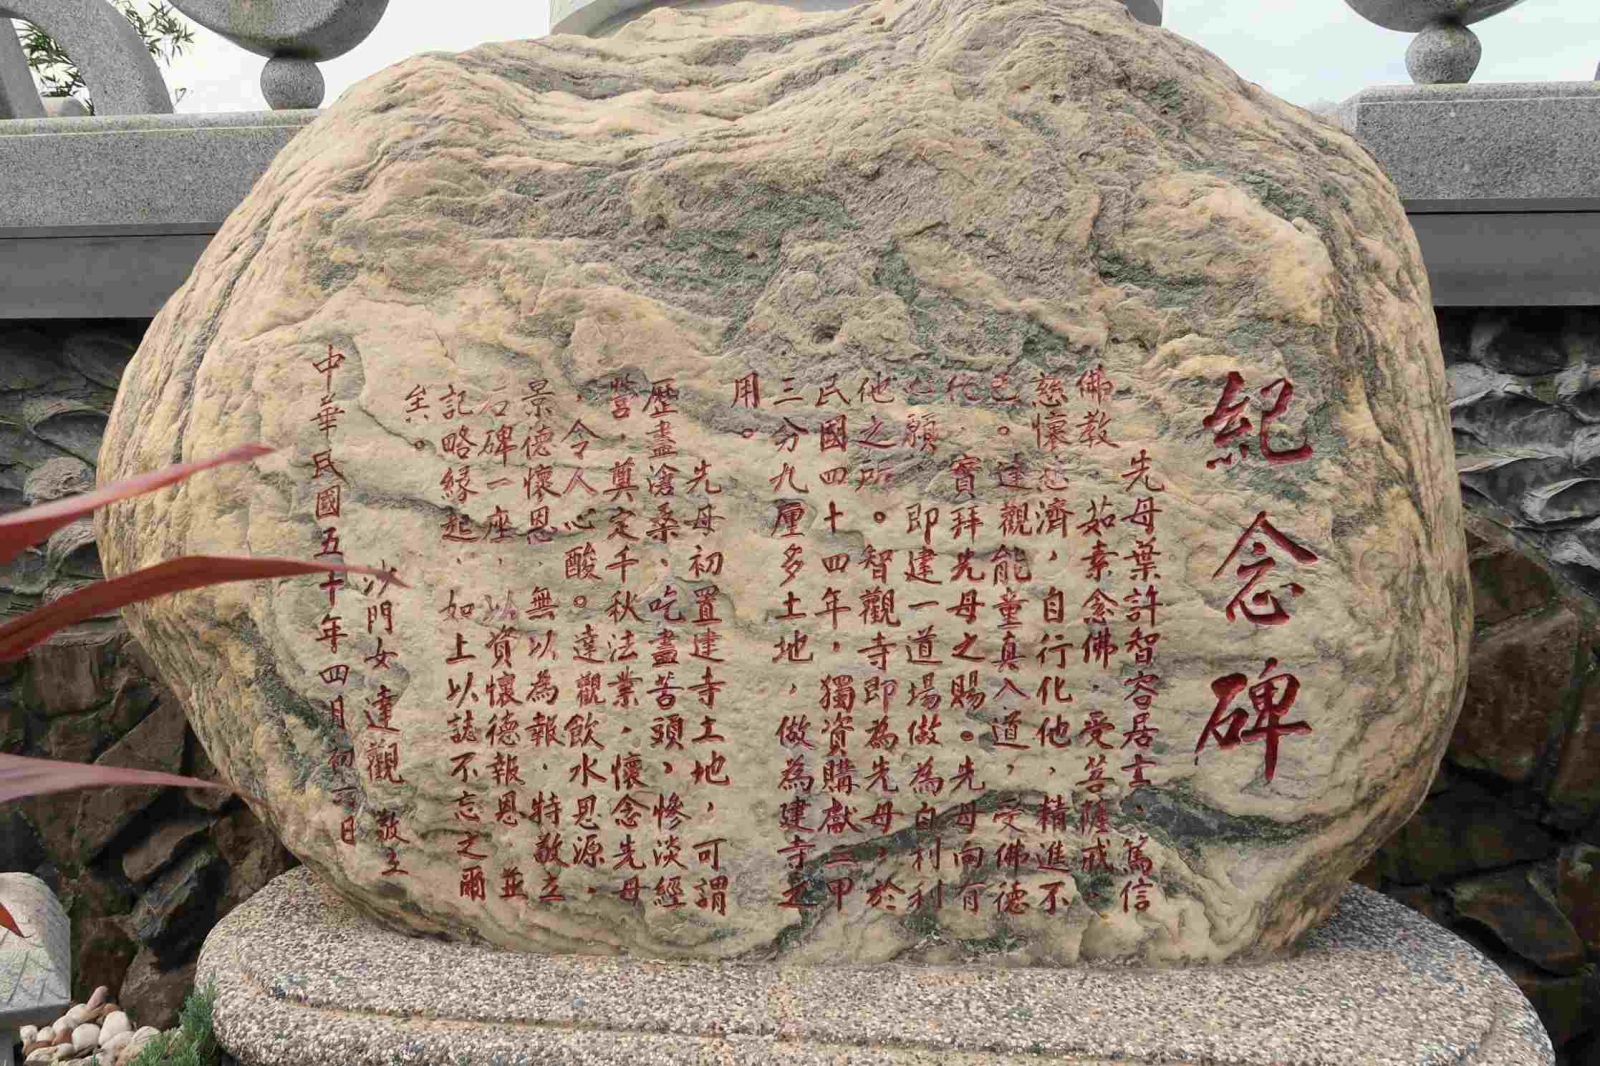 紀念碑
先母葉許智容居士，篤信
佛教　茹素念佛，受菩薩戒，
慈懷悲濟，自行化他，精進不
已。達觀能童真入道，受佛德
化，實拜先母之賜。先母向有
心願　即建一道場做為自利利
他之所。智觀寺即為先母，於
民國四十四年，獨資購獻三甲
三分九厘多土地，做為建寺之
用。
先母初置建寺土地，可謂
歷盡滄桑、吃盡苦頭，慘淡經
營，奠定千秋法業，懷念先母
，令人心酸。達觀飲水思源，
景德懷恩　無以為報，特敬立
石碑一座，以資懷德報恩　並
記略緣起，如上以誌不忘之爾
矣。
沙門女達觀　敬立
中華民國五十年四月初六日